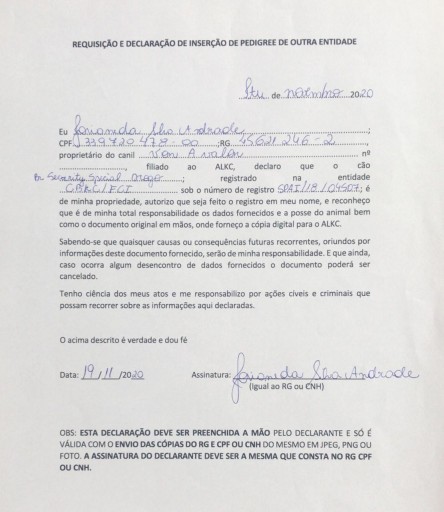 REQUISIÇÃO E DECLARAÇÃO DE INSERÇÃO DE PEDIGREE DE OUTRA ENTIDADE
Itu de novembro 2020
Eu Andrade
CPF :RG
proprietário do canil Von Avalon nº
filiado ao ALKC, declaro que o cão
Security Special registrado na entidade
CBKC/FCI sob o número de registro SPAI/18/04507; é
de minha propriedade, autorizo que seja feito o registro em meu nome, e reconheço
que é de minha total responsabilidade os dados fornecidos e a posse do animal bem
como o documento original em mãos, onde forneço a cópia digital para o ALKC.
Sabendo-se que quaisquer causas ou consequências futuras recorrentes, oriundos por
informações deste documento fornecido, serão de minha responsabilidade. E que ainda,
caso ocorra algum desencontro de dados fornecidos o documento poderá ser
cancelado.
Tenho ciência dos meus atos e me responsabilizo por ações cíveis e criminais que
possam recorrer sobre as informações aqui declaradas.
O acima descrito é verdade e dou fé
Data: 19/11/2020 Assinatura: Andrade
(igual ao RG ou CNH)
OBS: ESTA DECLARAÇÃO DEVE SER PREENCHIDA A MÃO PELO DECLARANTE E SÓ É
VÁLIDA COM O ENVIO DAS CÓPIAS DO RG E CPF OU CNH DO MESMO EM JPEG, PNG OU
FOTO. A ASSINATURA DO DECLARANTE DEVE SER A MESMA QUE CONSTA NO RG CPF
OU CNH.